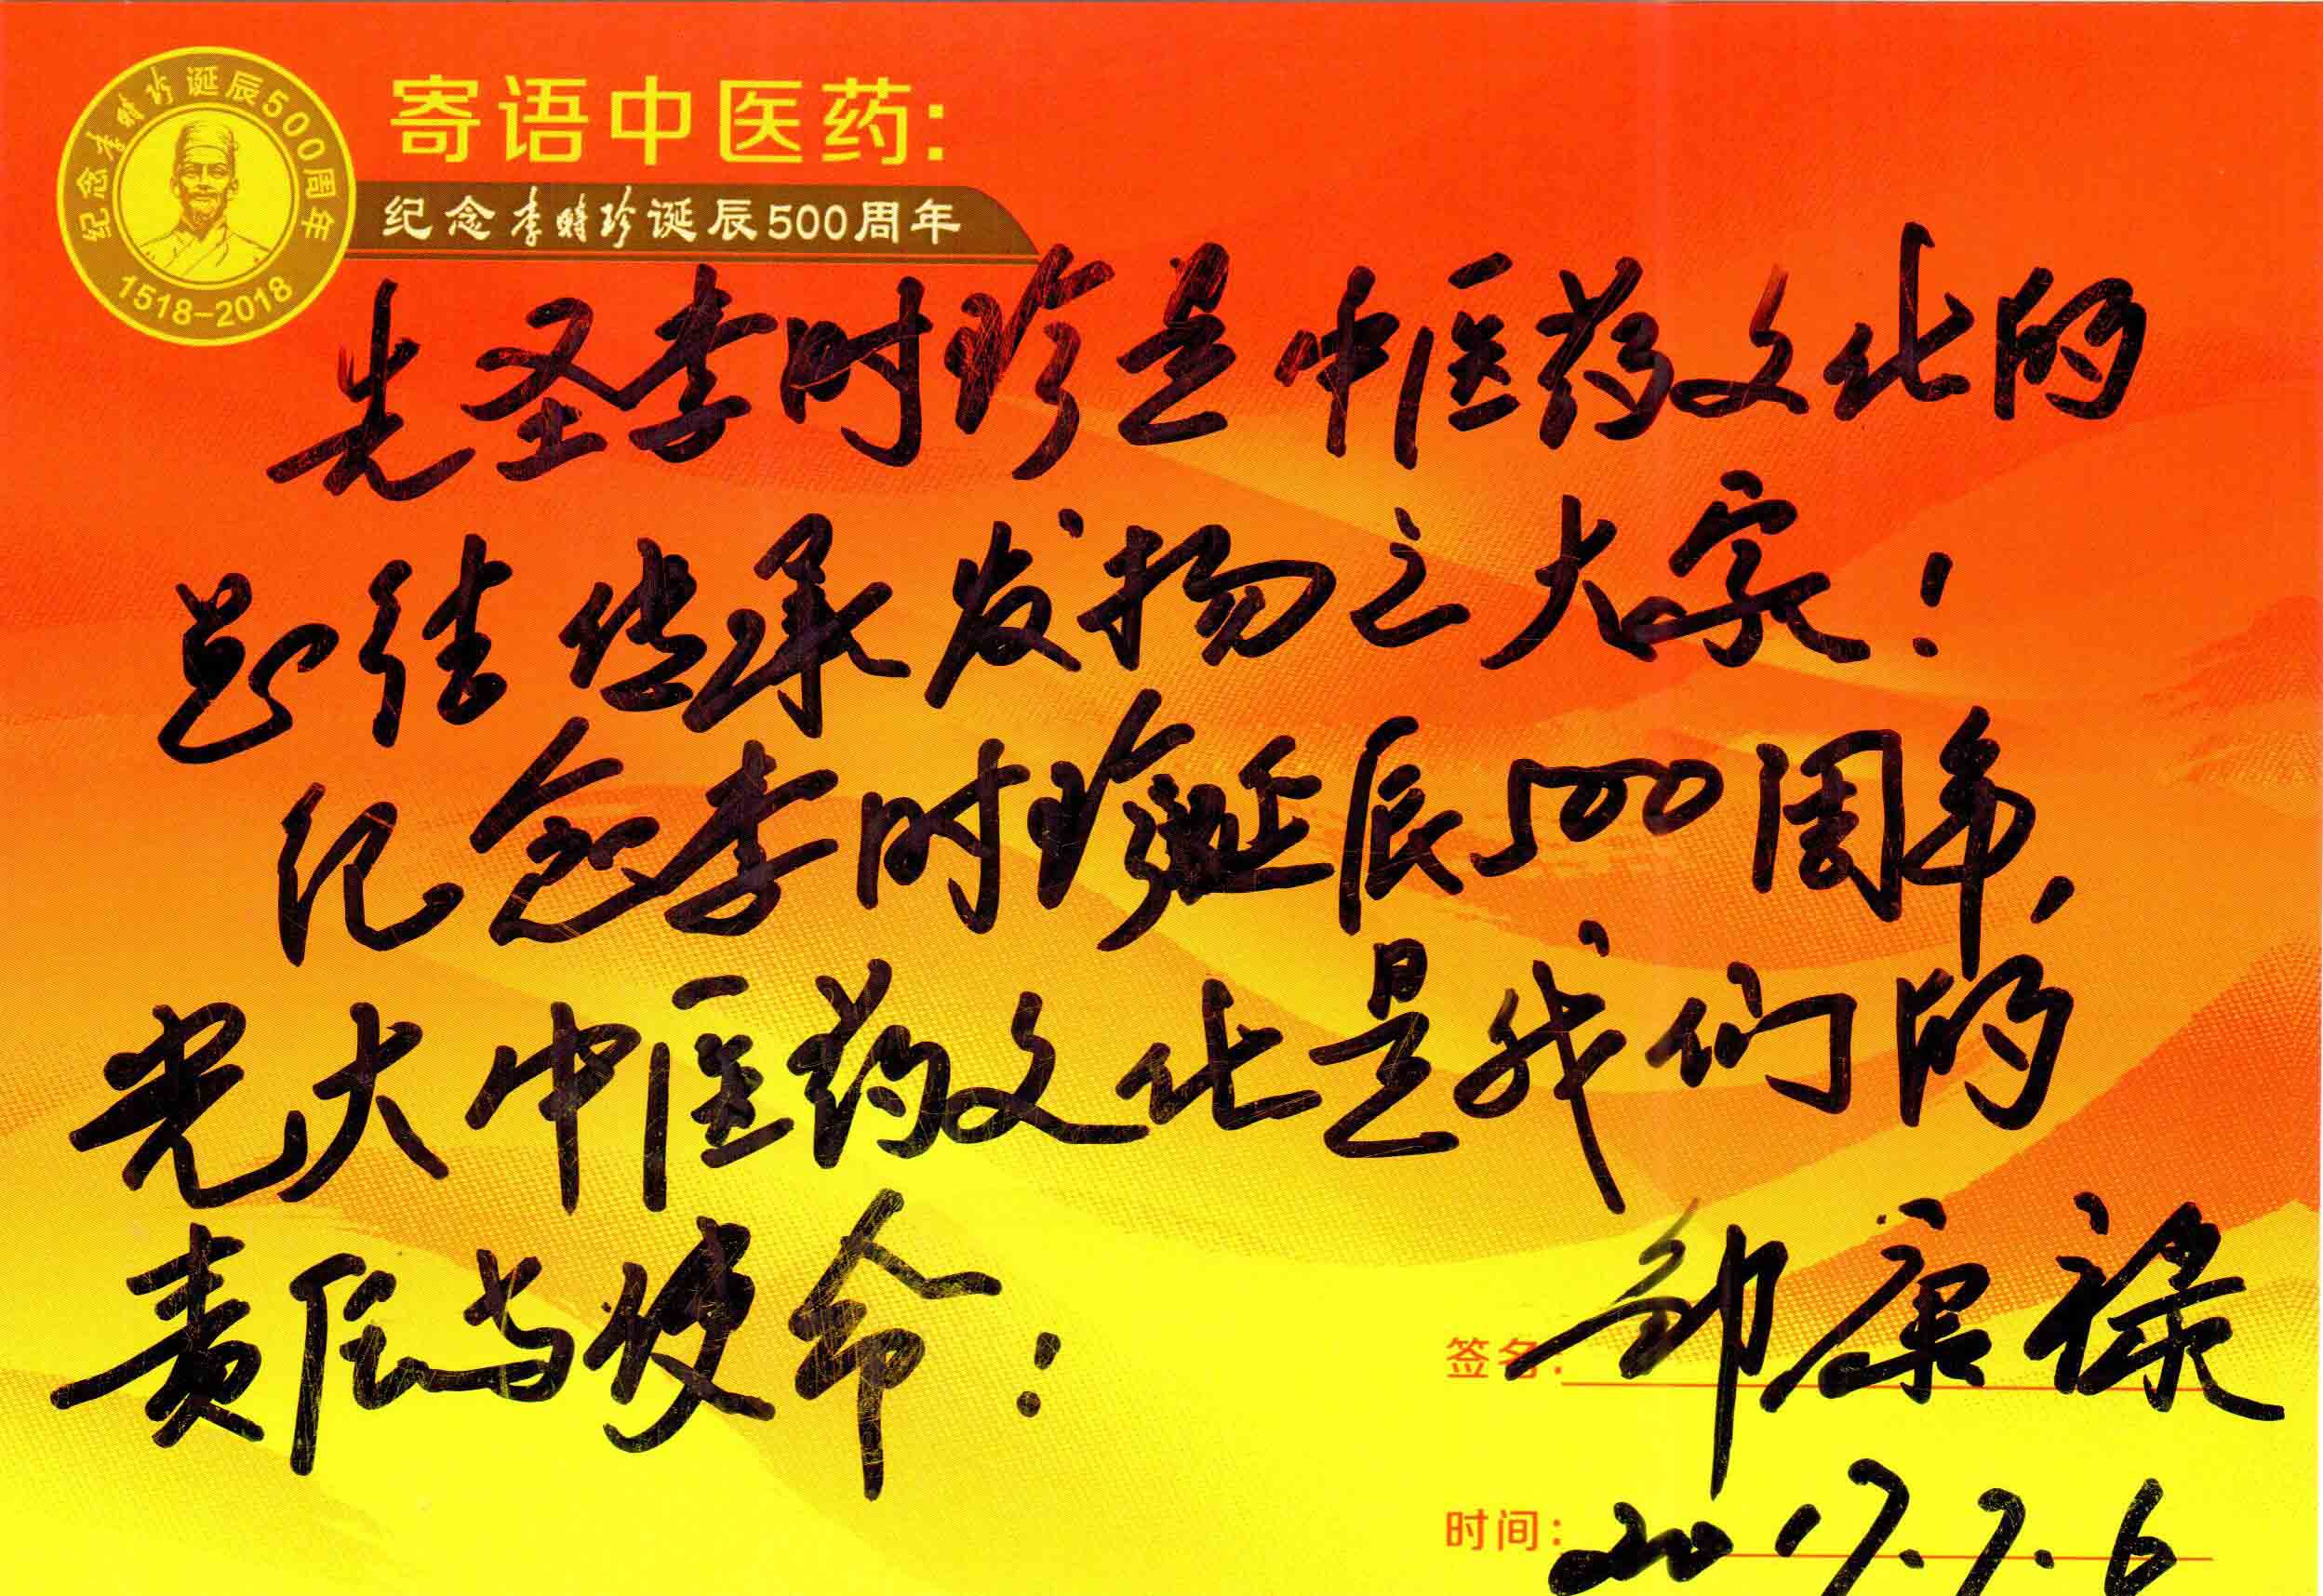 纪念李时珍诞辰500周年
1518-2018
寄语中医药:
纪念李时珍诞辰500周年
先圣李时珍是中医药文化的
总结传承发扬之大家!
纪念李时珍诞辰500周年,
光大中医药文化是我们的
责任与使命:
签名: 邹康禄
时间: 2017.7.6